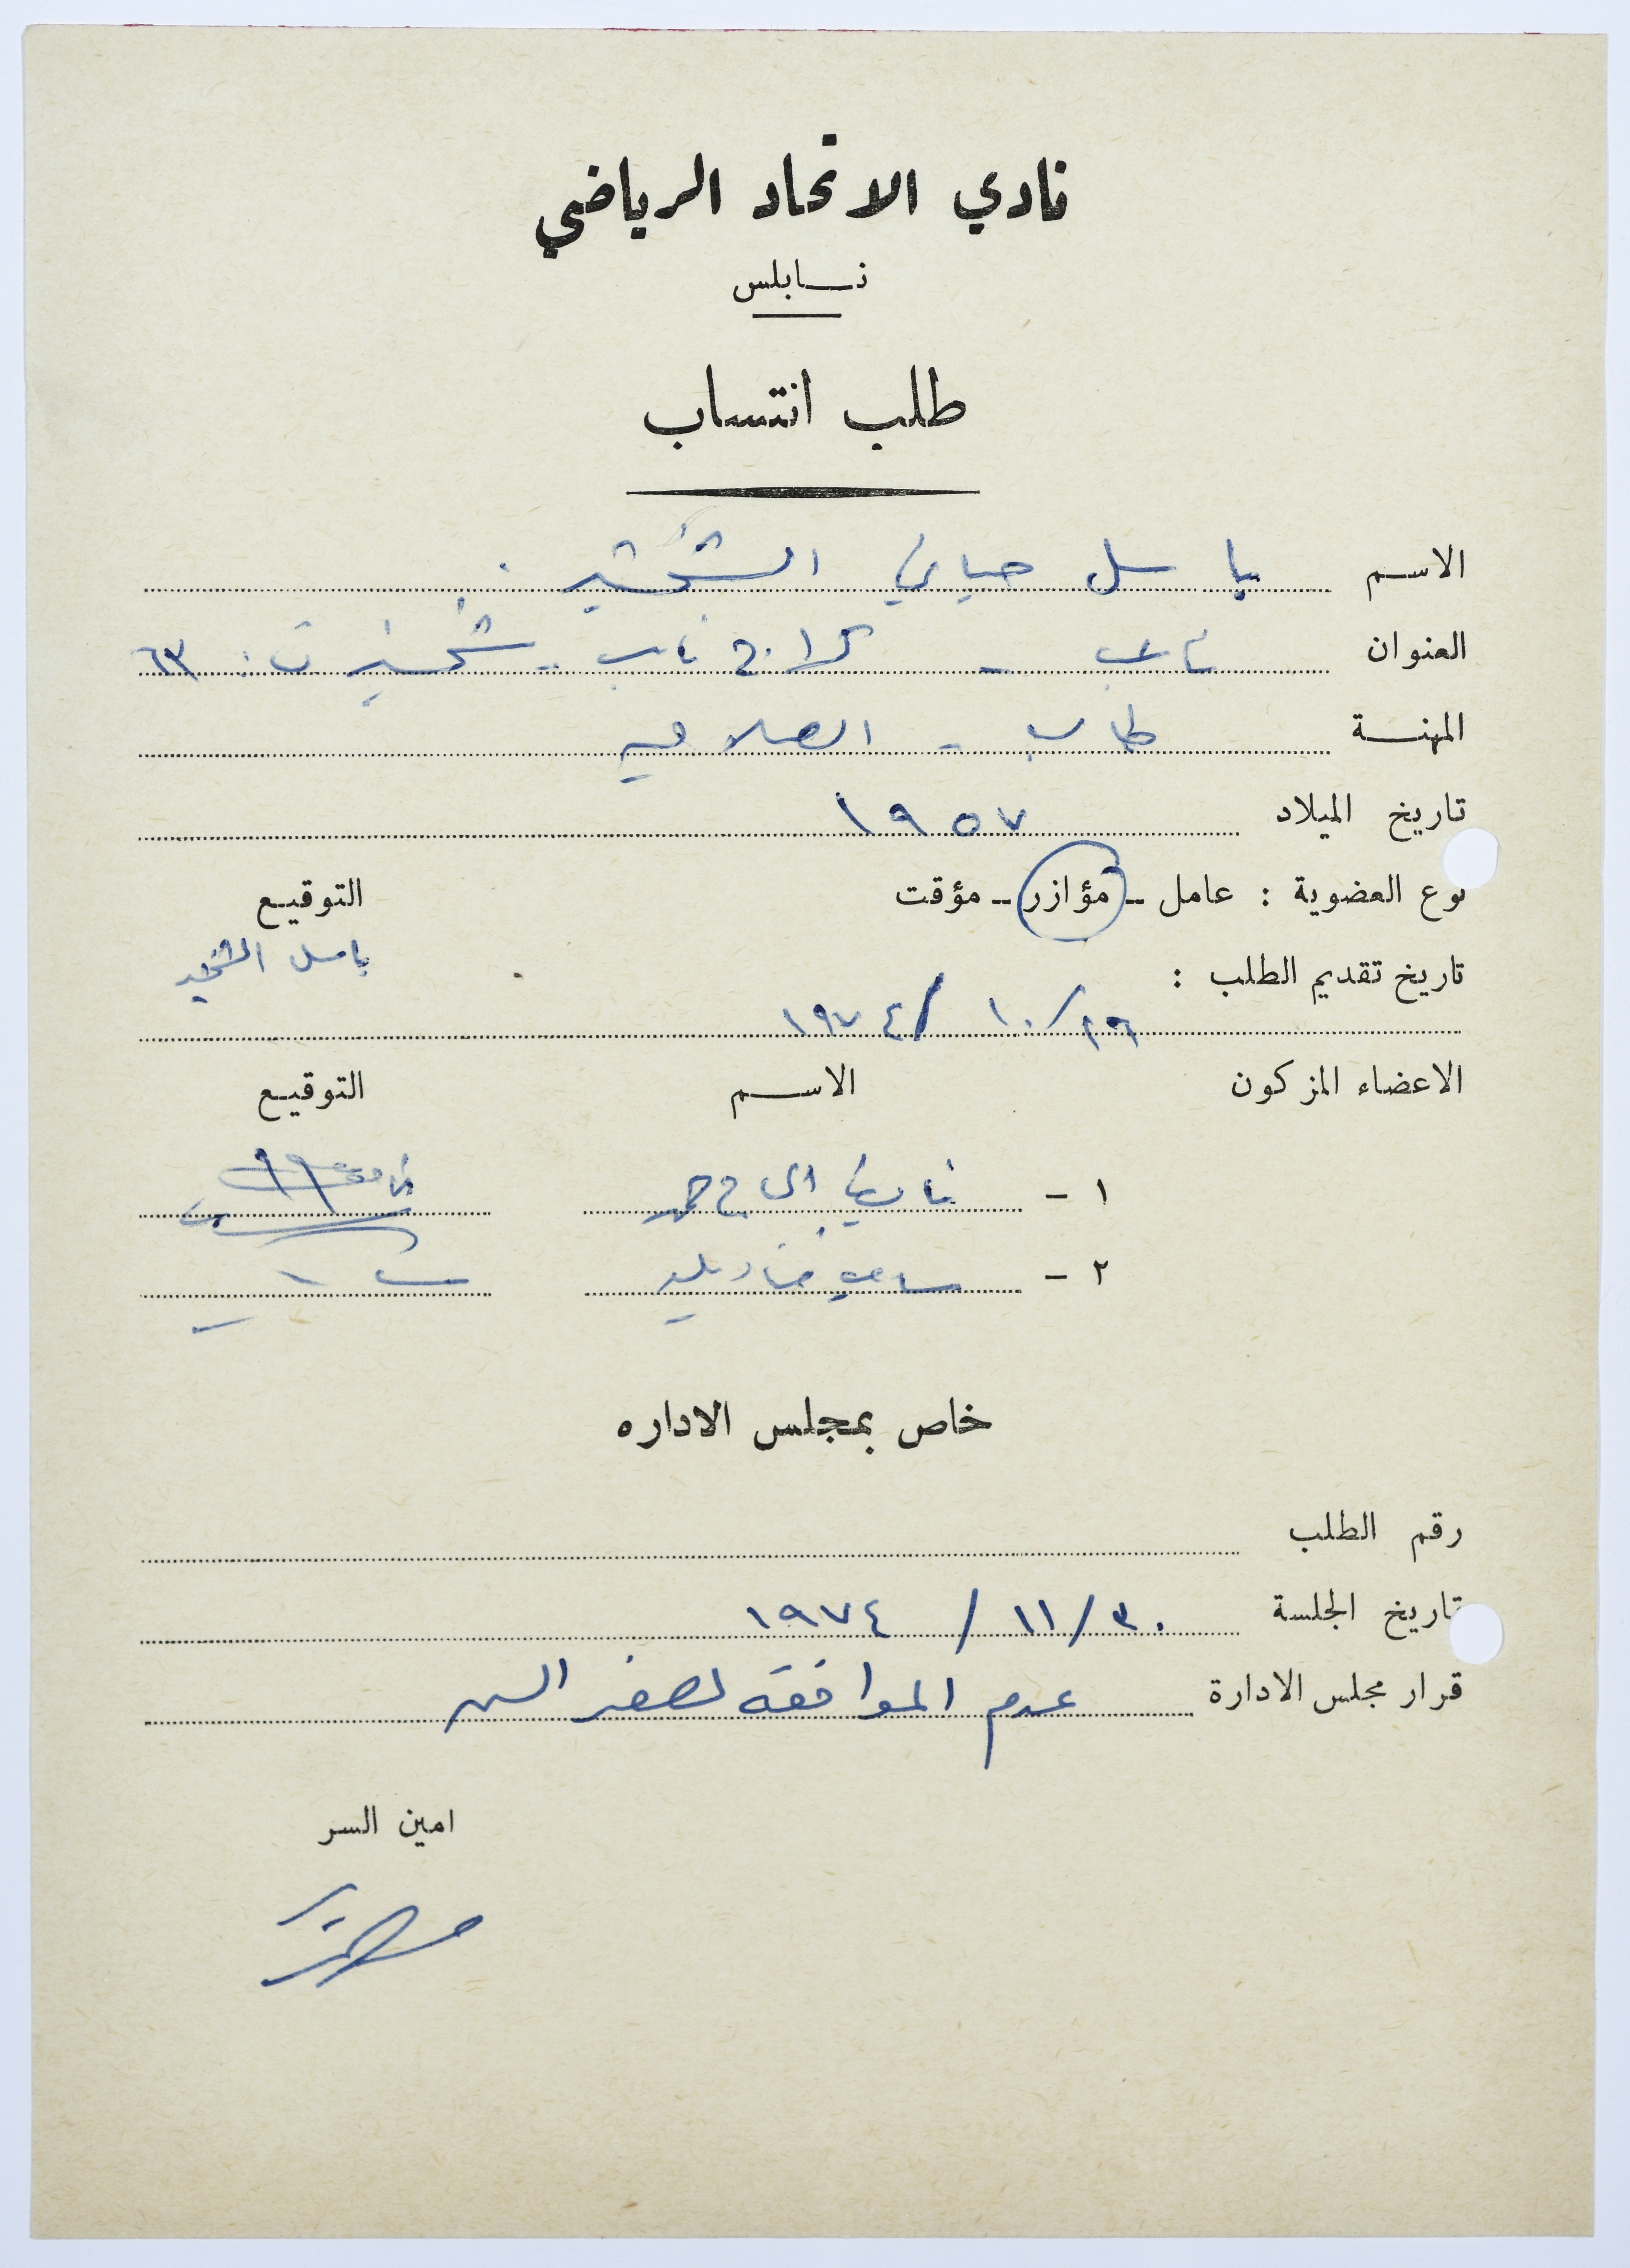 نادي الاتحاد الرياضي
نابلس
طلب انتساب
الاسم باسل حياتي الشخشير
العنوان نابلس - كراج نابلس - شخشير ت: ٦٣
المهنة طالب - الصلاحية
تاريخ الميلاد ١٩٥٧
نوع العضوية : عامل - مؤازر - مؤقت التوقيع
تاريخ تقديم الطلب : باسل الشخشير
٢٩/١٠/١٩٧٤
الاعضاء المزكون الاسم التوقيع
١ -
٢ - سامي
خاص بمجلس الاداره
رقم الطلب
تاريخ الجلسة ٣٠/١١/١٩٧٤
قرار مجلس الادارة عدم الموافقه لصغر السن
امين السر